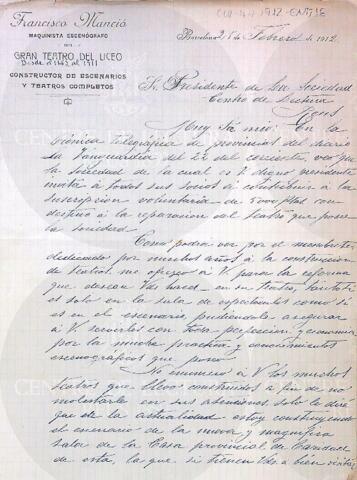 Francisco Manció
MAQUINISTA ESCENÓGRAFO
DEL
GRAN TEATRO DEL LICEO
Desde el 1862 al 1911
CONSTRUCTOR DE ESCENARIOS
Y TEATROS COMPLETOS
Barcelona 25 de Febrero de 1912
Sr. Presidente de la Sociedad
Centro de Lectura
Reus
Muy Sr. mio: En la
crónica telegrafica de provincias del diario
La Vanguardia del 22 del corriente, veo que
la sociedad de la cual es V. digno presidente
invita á todos sus socios á contribuir á la
suscripcion voluntaria de 5000 ptas con
destino á la reparacion del teatro que posee
la sociedad.
Como podrá ver por el membrete
dedicado por muchos años á la construccion
de Teatros, me ofrezco á V. para la reforma
que desean Vds hacer en su teatro, tanto si
es solo en la sala de espectaculos como si
es en el escenario, pudiendole asegurar
á V. servirles con toda perfeccion y economia
por la mucha practica y conocimientos
escenograficos que poseo
No enumero á V. los muchos
teatros que llevo construidos á fin de no
molestarle en sus atenciones, solo le diré
que en la actualidad estoy construyendo
el escenario de la nueva y magnifica
sala de la Casa provincial de Caridad
de esta, la que si tienen Vds á bien visitar